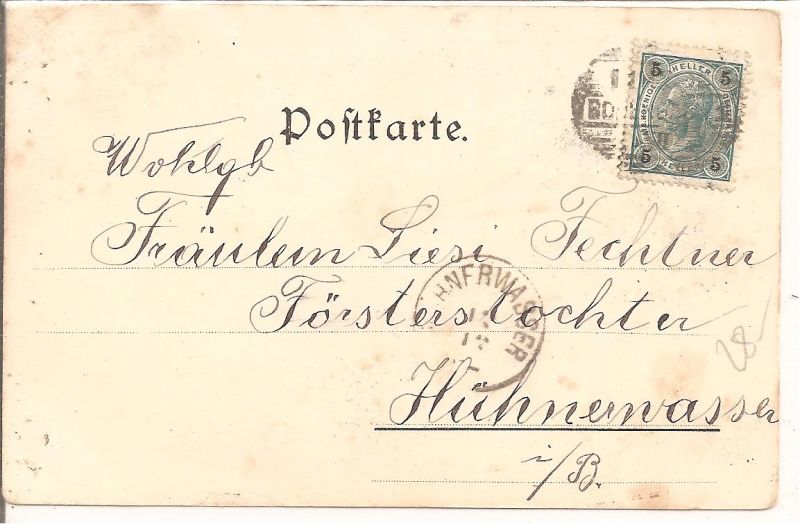 Postkarte.
Wohlgb
Fräulein Liesi Fechtner
Försterstochter
Hühnerwasser
i/B.
28
5 HELLER 5
5 5
HNERWASSER